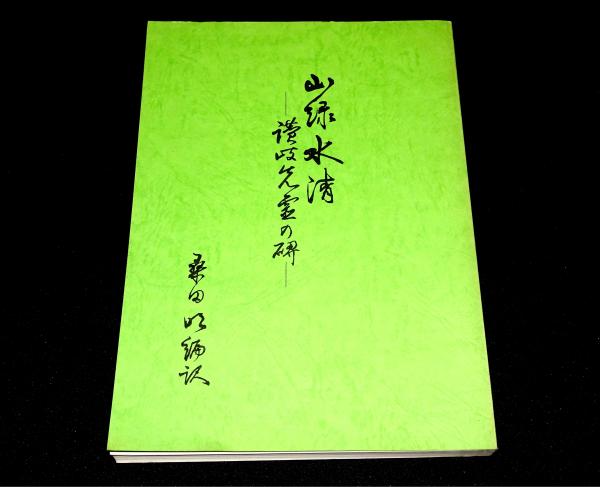 山緑水清
―讃岐先霊の碑―
桑田明編訳